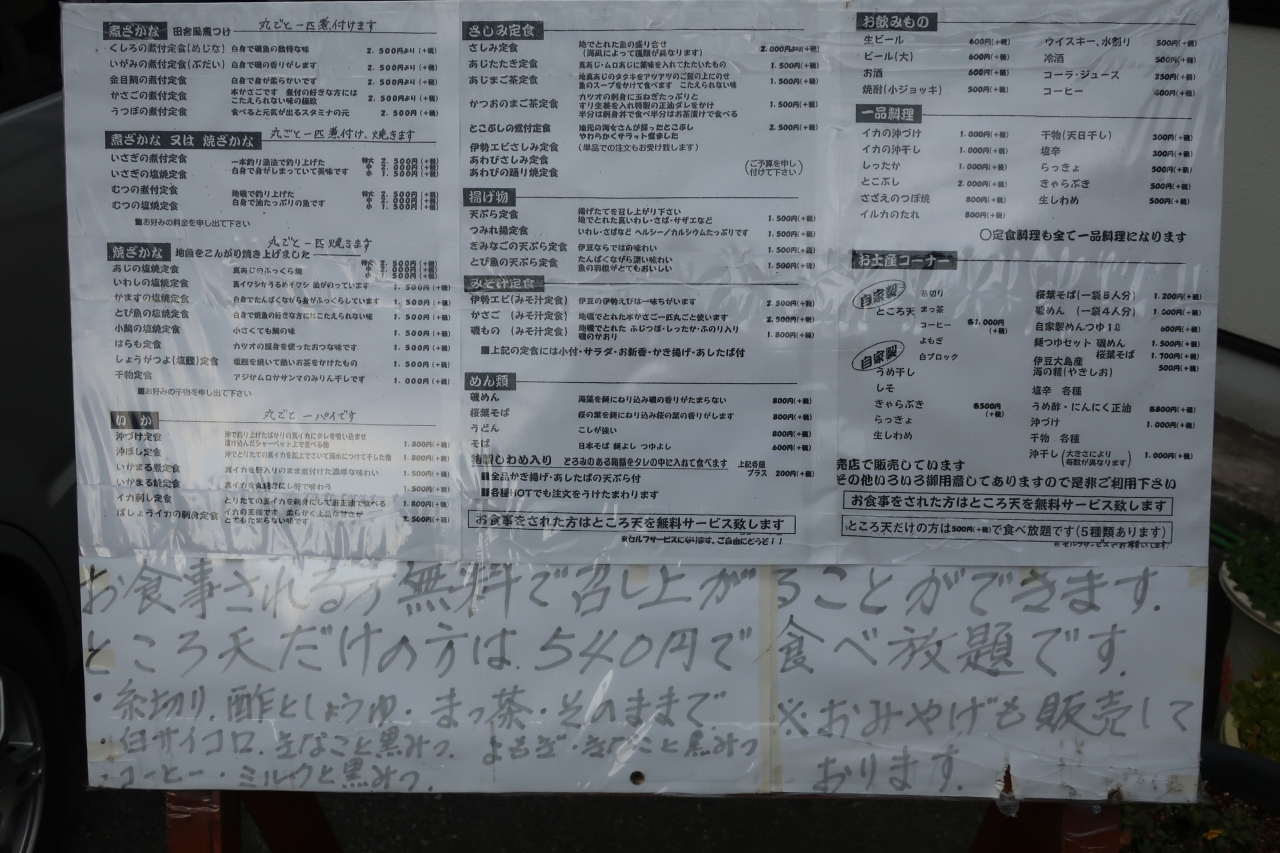 煮ざかな 田舎風煮つけ 丸ごと一匹煮付けます
くしろの煮付定食(めじな) 白身で磯魚の独特な味 2.500円より(+税)
いがみの煮付定食(ぶだい) 白身で磯の香りがします 2.500円より(+税)
金目鯛の煮付定食 白身で身が柔らかいです 2.500円より(+税)
かさごの煮付定食 本かさごです 煮付の好きな方には
こたえられない味の極致 2.500円より(+税)
うつぼの煮付定食 食べると元気が出るスタミナの元 2.500円(+税)
煮ざかな 又は 焼ざかな 丸ごと一匹 煮付け、焼きます
いさぎの煮付定食 一本釣り漁法で釣り上げた 特大 2.500円(+税)
いさぎの塩焼定食 白身で身がしまっていて美味です 中 2.000円(+税)
小 1.500円(+税)
むつの煮付定食 地磯で釣り上げた 特大 2.500円(+税)
むつの塩焼定食 白身で油たっぷりの魚です 中 2.000円(+税)
小 1.500円(+税)
■お好みの料金を申し出て下さい
焼ざかな 地魚をこんがり焼き上げました 丸ごと一匹焼きます
あじの塩焼定食 真あじのふっくら焼 特大 2.500円(+税)
中 2.000円(+税)
小 1.500円(+税)
いわしの塩焼定食 真イワシかうるめイワシ 油がのっています 1.500円(+税)
かますの塩焼定食 白身でたんぱくながら身がふっくらしています 1.500円(+税)
とび魚の塩焼定食 白身で焼魚の好きな方にはこたえられない味 1.500円(+税)
小鯛の塩焼定食 小さくても鯛の味 1.500円(+税)
はらも定食 カツオの腹身を使ったおつな味です 1.500円(+税)
しょうがつよ(塩鰹)定食 塩鰹を焼いて熱いお茶をかけたもの 1.500円(+税)
干物定食 アジかムロかサンマのみりん干しです 1.000円(+税)
■お好みの干物を申し出て下さい
いか 丸ごと一パイです
沖づけ定食 沖で釣り上げたばかりの真イカにタレを吸い込ませ
漬け込んだシャーベット上で食べる物 1.800円(+税)
沖ぼし定食 沖でとりたての真イカを船上でさいて海水につけて干した物 1.800円(+税)
いかまる煮定食 真イカを肝入りのまま煮付けた濃厚な味わい 1.500円(+税)
いかまる焼定食 1.500円(+税)
イカ刺し定食 とりたての真イカを刺身にしてお正油で食べる 1.800円(+税)
ばしょうイカの刺身定食 イカの王様です 柔らかく上品な甘さが
とてもたまらない味です 2.500円(+税)
さしみ定食
さしみ定食 地でとれた魚の盛り合せ
(海凪によって種類が異なります) 2.000円より(+税)
あじたたき定食 真あじ・ムロあじに薬味を入れてたたいたもの 1.500円(+税)
あじまご茶定食 地真あじのタタキをアツアツのご飯の上にのせ
魚のスープをかけて食べます こたえられない味 1.500円(+税)
かつおのまご茶定食 カツオの刺身に玉ねぎたっぷりと
すり生姜を入れ特製の正油ダレをかけ 1.500円(+税)
半分は刺身丼で食べ半分はお茶漬けで食べる
とこぶしの煮付定食 地元の海女さんが採ったとこぶし
やわらかくサラッと煮ました 2.500円(+税)
伊勢エビさしみ定食 (単品での注文もお受け致します)
あわびさしみ定食
あわびの踊り焼定食 (ご予算を申し付けて下さい)
揚げ物
天ぷら定食 揚げたてを召し上がり下さい
地でとれた真いわし・さば・サザエなど 1.500円(+税)
つみれ揚定食 いわし・さばなど ヘルシー/カルシウムたっぷりです 1.500円(+税)
きみなごの天ぷら定食 伊豆ならではの味わい 1.500円(+税)
とび魚の天ぷら定食 たんぱくながら深い味わい
魚の羽根がとてもおいしい 1.500円(+税)
みそ汁定食
伊勢エビ(みそ汁定食) 伊豆の伊勢えびは一味ちがいます 2.500円(+税)
かさご (みそ汁定食) 地磯でとれた本かさご一匹丸ごと使います 2.500円(+税)
磯もの (みそ汁定食) 地磯でとれた ふじつぼ・しったか・ふのり入り
磯のかおり 1.800円(+税)
■上記の定食には小付・サラダ・お新香・かき揚げ・あしたば付
めん類
磯めん 海藻を麺にねり込み磯の香りがたまらない 800円(+税)
桜葉そば 桜の葉を麺にねり込み桜の葉の香りがします 800円(+税)
うどん こしが強い 800円(+税)
そば 日本そば 麺よし つゆよし 600円(+税)
特製しわめ入り とろみのある海藻をタレの中に入れて食べます 上記各種プラス 200円(+税)
■全品かき揚げ・あしたばの天ぷら付
■各種HOTでも注文をうけたまわります
お食事をされた方はところ天を無料サービス致します
※セルフサービスになります。ご自由にどうぞ!!
お飲みもの
生ビール 600円(+税) ウイスキー、水割り 500円(+税)
ビール(大) 600円(+税) 冷酒 500円(+税)
お酒 600円(+税) コーラ・ジュース 250円(+税)
焼酎(小ジョッキ) 500円(+税) コーヒー 400円(+税)
一品料理
イカの沖づけ 1.000円(+税) 干物(天日干し) 300円(+税)
イカの沖干し 1.000円(+税) 塩辛 300円(+税)
しったか 1.000円(+税) らっきょ 500円(+税)
とこぶし 2.000円(+税) きゃらぶき 500円(+税)
さざえのつぼ焼 800円(+税) 生しわめ 500円(+税)
イルカのたれ 800円(+税)
〇定食料理も全て一品料理になります
お土産コーナー
自家製 ところ天 糸切り
まっ茶
コーヒー 各1.000円(+税)
よもぎ
白ブロック
自家製
うめ干し
しそ
きゃらぶき 各500円(+税)
らっきょ
生しわめ
桜葉そば(一袋5人分) 1.200円(+税)
磯めん (一袋4人分) 1.000円(+税)
自家製めんつゆ1ℓ 600円(+税)
麺つゆセット 磯めん 1.500円(+税)
桜葉そば 1.700円(+税)
伊豆大島産
海の精(やきしお) 500円(+税)
塩辛 各種
うめ酢・にんにく正油 各800円(+税)
沖づけ 1.000円(+税)
干物 各種
沖干し(大きさにより毎数が異なります) 1.000円(+税)
売店で販売しています
その他いろいろ御用意してありますので是非ご利用下さい
お食事をされた方はところ天を無料サービス致します
ところ天だけの方は500円(+税)で食べ放題です(5種類あります)
※セルフサービスでお願いします。
お食事される方無料で召し上がることができます.
ところ天だけの方は.540円で食べ放題です.
・糸切り.酢としょうゆ・まっ茶・そのままで
・白サイコロ.きなこと黒みつ.よもぎ・きなこと黒みつ
・コーヒー・ミルクと黒みつ.
※おみやげも販売して
おります.